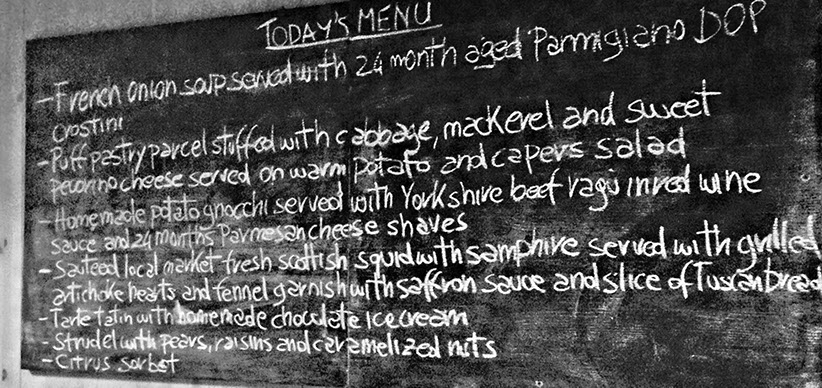 TODAY'S MENU
- French onion soup served with 24 month aged Parmigiano DOP
crostini
- Puff pastry parcel stuffed with cabbage, mackerel and sweet
pecorino cheese served on warm potato and capers salad
- Homemade potato gnocchi served with Yorkshire beef ragù in red wine
sauce and 24 months Parmesan cheese shaves
- Sauteed local market fresh scottish squid with samphire served with grilled
artichoke hearts and fennel garnish with saffron sauce and slice of Tuscan bread
- Tarte tatin with homemade chocolate ice cream
- Strudel with pears, raisins and caramelized nuts
- Citrus sorbet